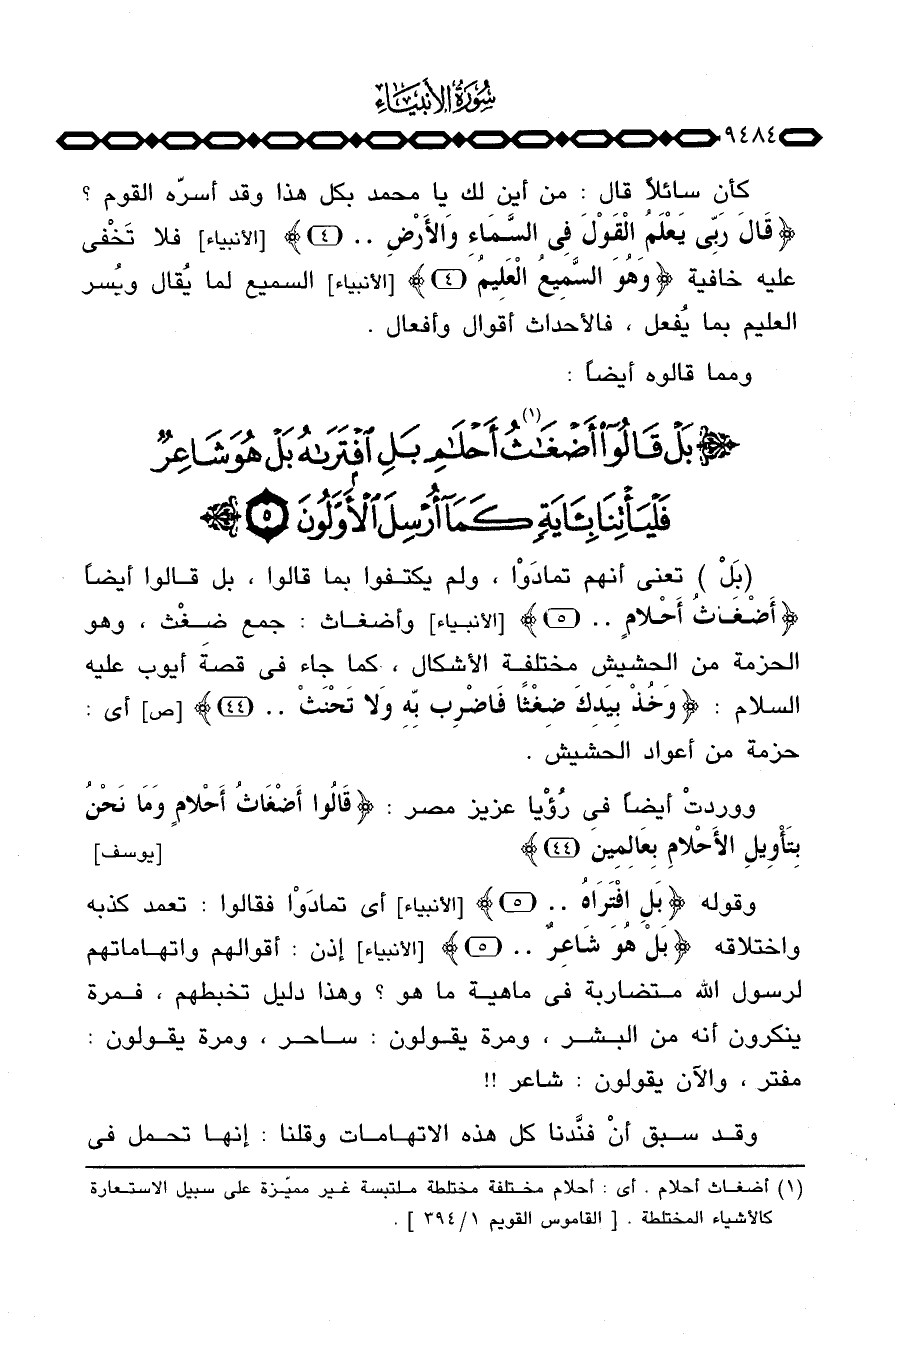 سُورَةُ الأَنبِيَاءِ
٩٤٨٤
كأن سائلاً قال : من أين لك يا محمد بكل هذا وقد أسرّه القوم ؟
﴿ قَالَ رَبِّى يَعْلَمُ الْقَوْلَ فِى السَّمَاءِ وَالأَرْضِ .. (٤)﴾ [الأنبياء] فلا تَخْفى
عليه خافية ﴿ وَهُوَ السَّمِيعُ الْعَلِيمُ (٤)﴾ [الأنبياء] السميع لما يُقال ويُسر
العليم بما يُفعل ، فالأحداث أقوال وأفعال .
ومما قالوه أيضاً :
﴿ بَلْ قَالُوٓا۟ أَضْغَٰثُ (١) أَحْلَٰمٍۭ بَلِ ٱفْتَرَىٰهُ بَلْ هُوَ شَاعِرٌ
فَلْيَأْتِنَا بِـَٔايَةٍ كَمَآ أُرْسِلَ ٱلْأَوَّلُونَ ٥ ﴾
(بَلْ ) تعنى أنهم تمادَوْا ، ولم يكتفوا بما قالوا ، بل قالوا أيضاً
﴿ أَضْغَاثُ أَحْلامٍ .. (٥)﴾ [الأنبياء] وأضغاث : جمع ضغْث ، وهو
الحزمة من الحشيش مختلفة الأشكال ، كما جاء فى قصة أيوب عليه
السلام : ﴿ وَخُذْ بِيَدِكَ ضِغْثًا فَاضْرِب بِّهِ وَلا تَحْنَثْ .. (٤٤)﴾ [ص] أى :
حزمة من أعواد الحشيش .
ووردتْ أيضاً فى رُؤْيا عزيز مصر : ﴿ قَالُوا أَضْغَاثُ أَحْلامٍ وَمَا نَحْنُ
بِتَأْوِيلِ الأَحْلامِ بِعَالِمِينَ (٤٤)﴾ [يوسف]
وقوله ﴿ بَلِ افْتَرَاهُ .. (٥)﴾ [الأنبياء] أى تمادَوْا فقالوا : تعمد كذبه
واختلاقه ﴿ بَلْ هُوَ شَاعِرٌ .. (٥)﴾ [الأنبياء] إذن : أقوالهم واتهاماتهم
لرسول الله متضاربة فى ماهية ما هو ؟ وهذا دليل تخبطهم ، فمرة
ينكرون أنه من البشر ، ومرة يقولون : ساحر ، ومرة يقولون :
مفتر ، والآن يقولون : شاعر !!
وقد سبق أنْ فنَّدنا كل هذه الاتهامات وقلنا : إنها تحمل فى
(١) أضغاث أحلام . أى : أحلام مختلفة مختلطة ملتبسة غير مميّزة على سبيل الاستعارة
كالأشياء المختلطة . [ القاموس القويم ١/ ٣٩٤ ] .